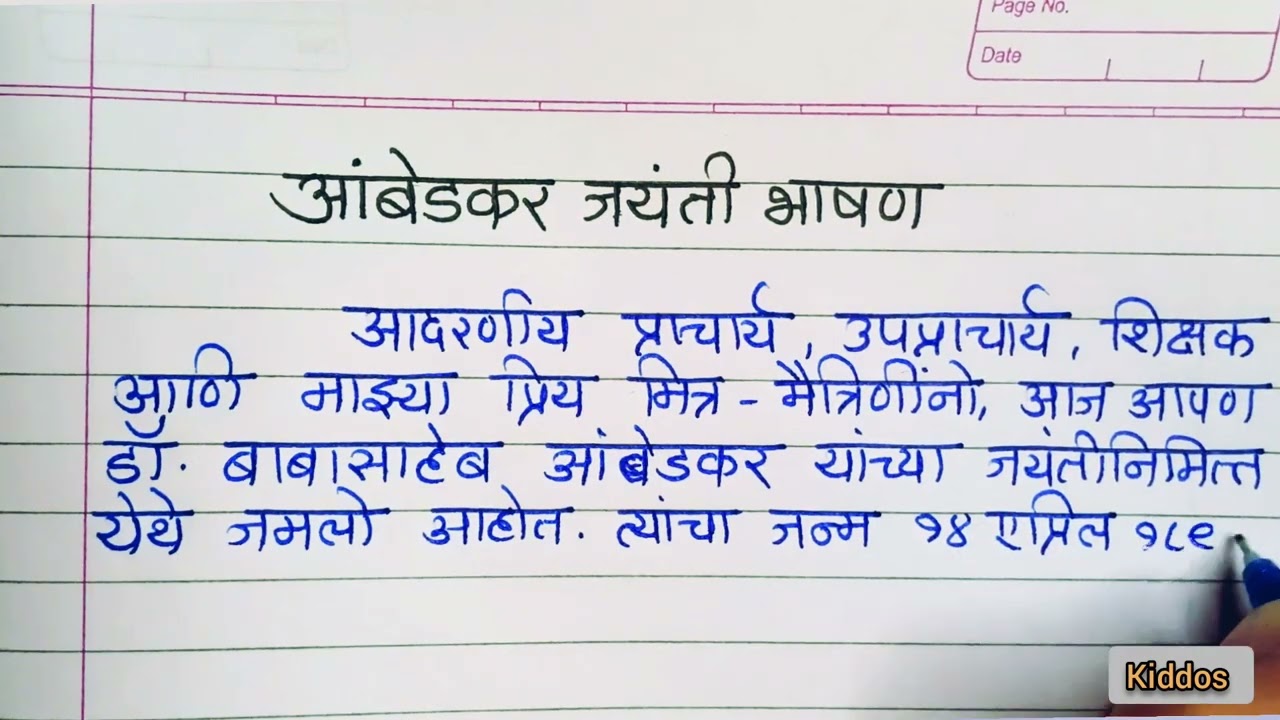 Page No.
Date
आंबेडकर जयंती भाषण
आदरणीय प्राचार्य, उपप्राचार्य, शिक्षक
आणि माझ्या प्रिय मित्र - मैत्रिणींनो, आज आपण
डॉ. बाबासाहेब आंबेडकर यांच्या जयंतीनिमित्त
येथे जमलो आहोत. त्यांचा जन्म १४ एप्रिल १८९
Kiddos